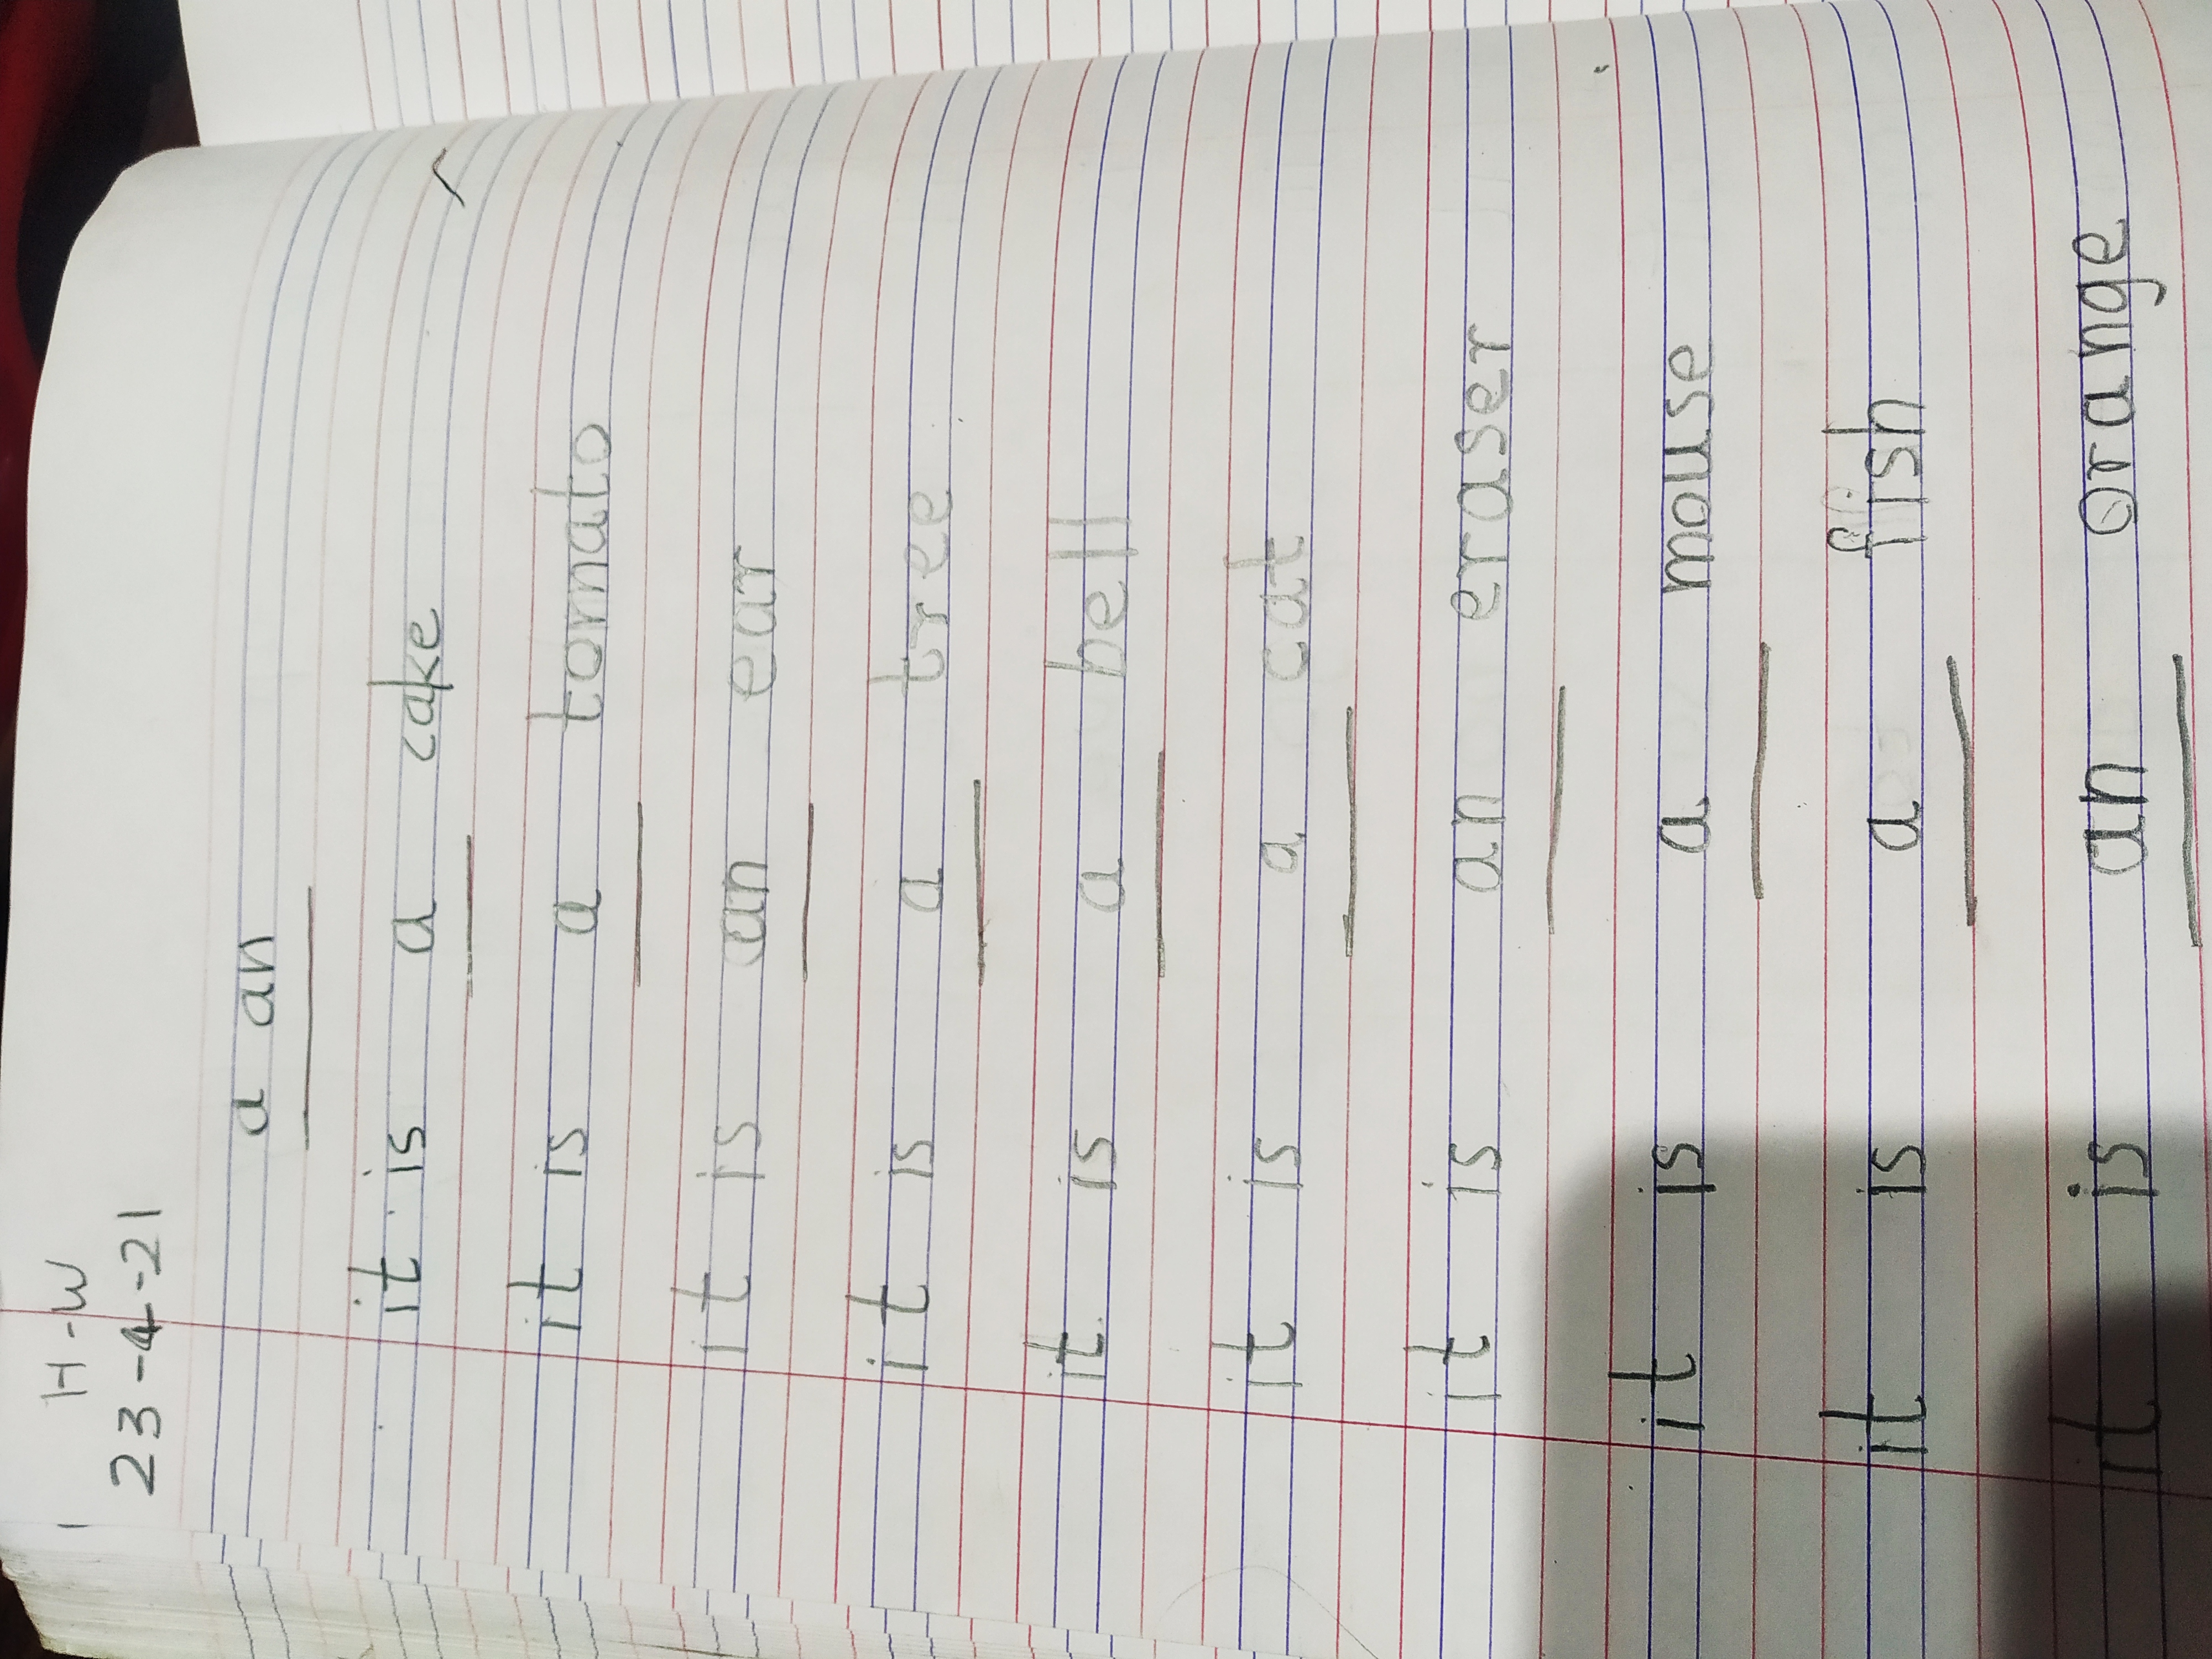 H-W
23-4-21
a an
it is a cake
it is a tomato
it is an ear
it is a tree
it is a bell
it is a cat
it is an eraser
it is a mouse
it is a fish
it is an orange